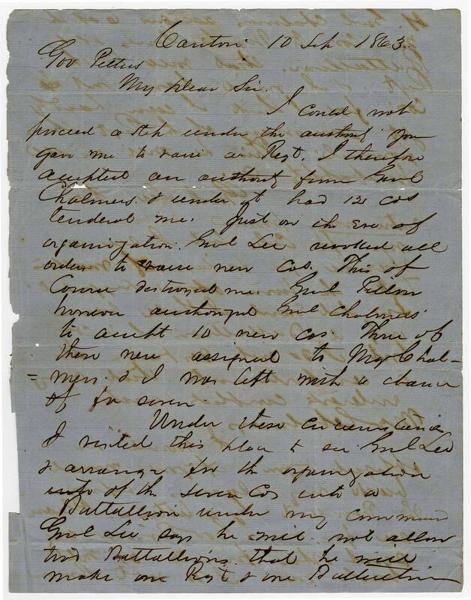 Canton 10 Sep 1863.
Gov Pettus
My Dear Sir.
I could not
proceed a step under the authority you
gave me to raise a Regt. I therefore
accepted an authority from Genl
Chalmers & under it had 12 cos
tendered me. Just on the Eve of
organization Genl Lee revoked all
orders to raise new Cos. This of
course destroyed me. Genl
however authorized Genl Chalmers
to accept 10 new cos. Three of
these were assigned to Maj Chal-
=mers & I was left with a chance
of for seven
Under these circumstances
I visited this place to see Genl Lee
& arrange for the organization
of the seven Cos into a
Battallion under my command
Genl Lee says he will not allow
two Battallions that he will
make one Regt & one Battallion